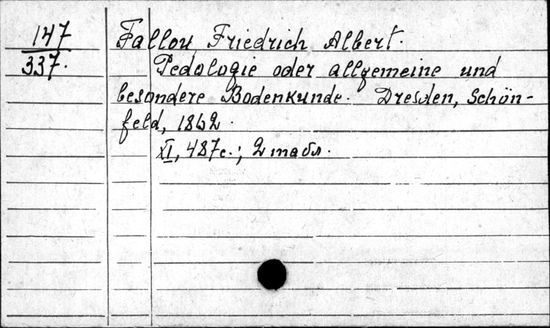 147
337.
Fallou Friedrich Albert.
Pedologie oder allgemeine und
besondere Bodenkunde. Dresden, Schön-
feld, 1862.
XI, 487c.; 2 табл.